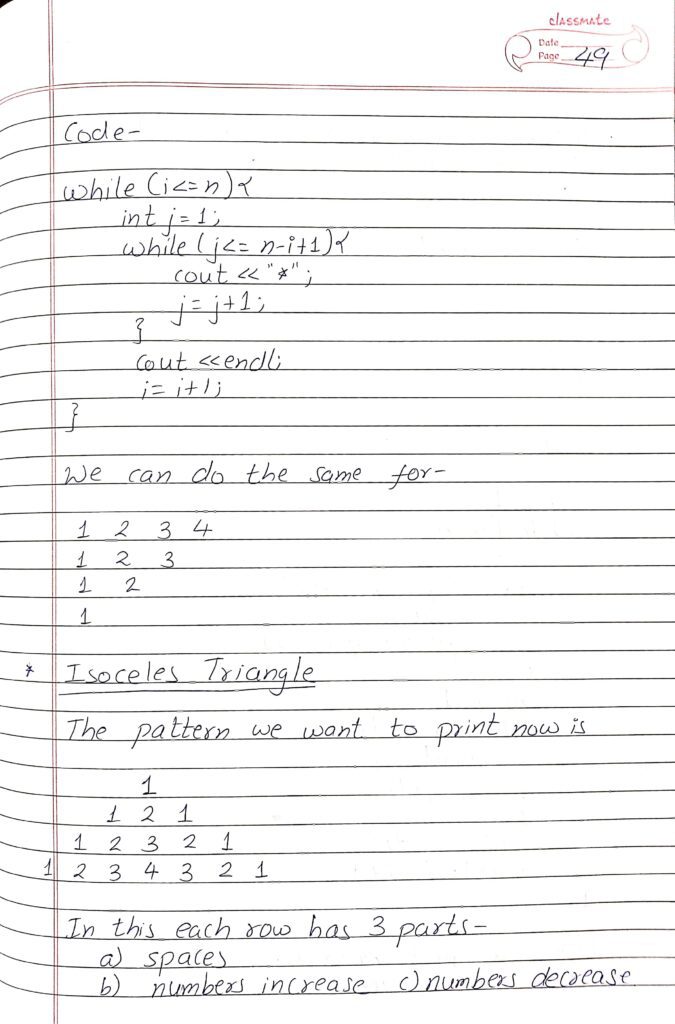 classmate
Date
Page 49
Code-
while (i<=n){
int j=1;
while (j<= n-i+1){
cout << "*";
j=j+1;
}
cout <<endl;
i=i+1;
}
We can do the same for-
1 2 3 4
1 2 3
1 2
1
* Isoceles Triangle
The pattern we want to print now is
1
1 2 1
1 2 3 2 1
1 2 3 4 3 2 1
In this each row has 3 parts-
a) spaces
b) numbers increase c) numbers decrease